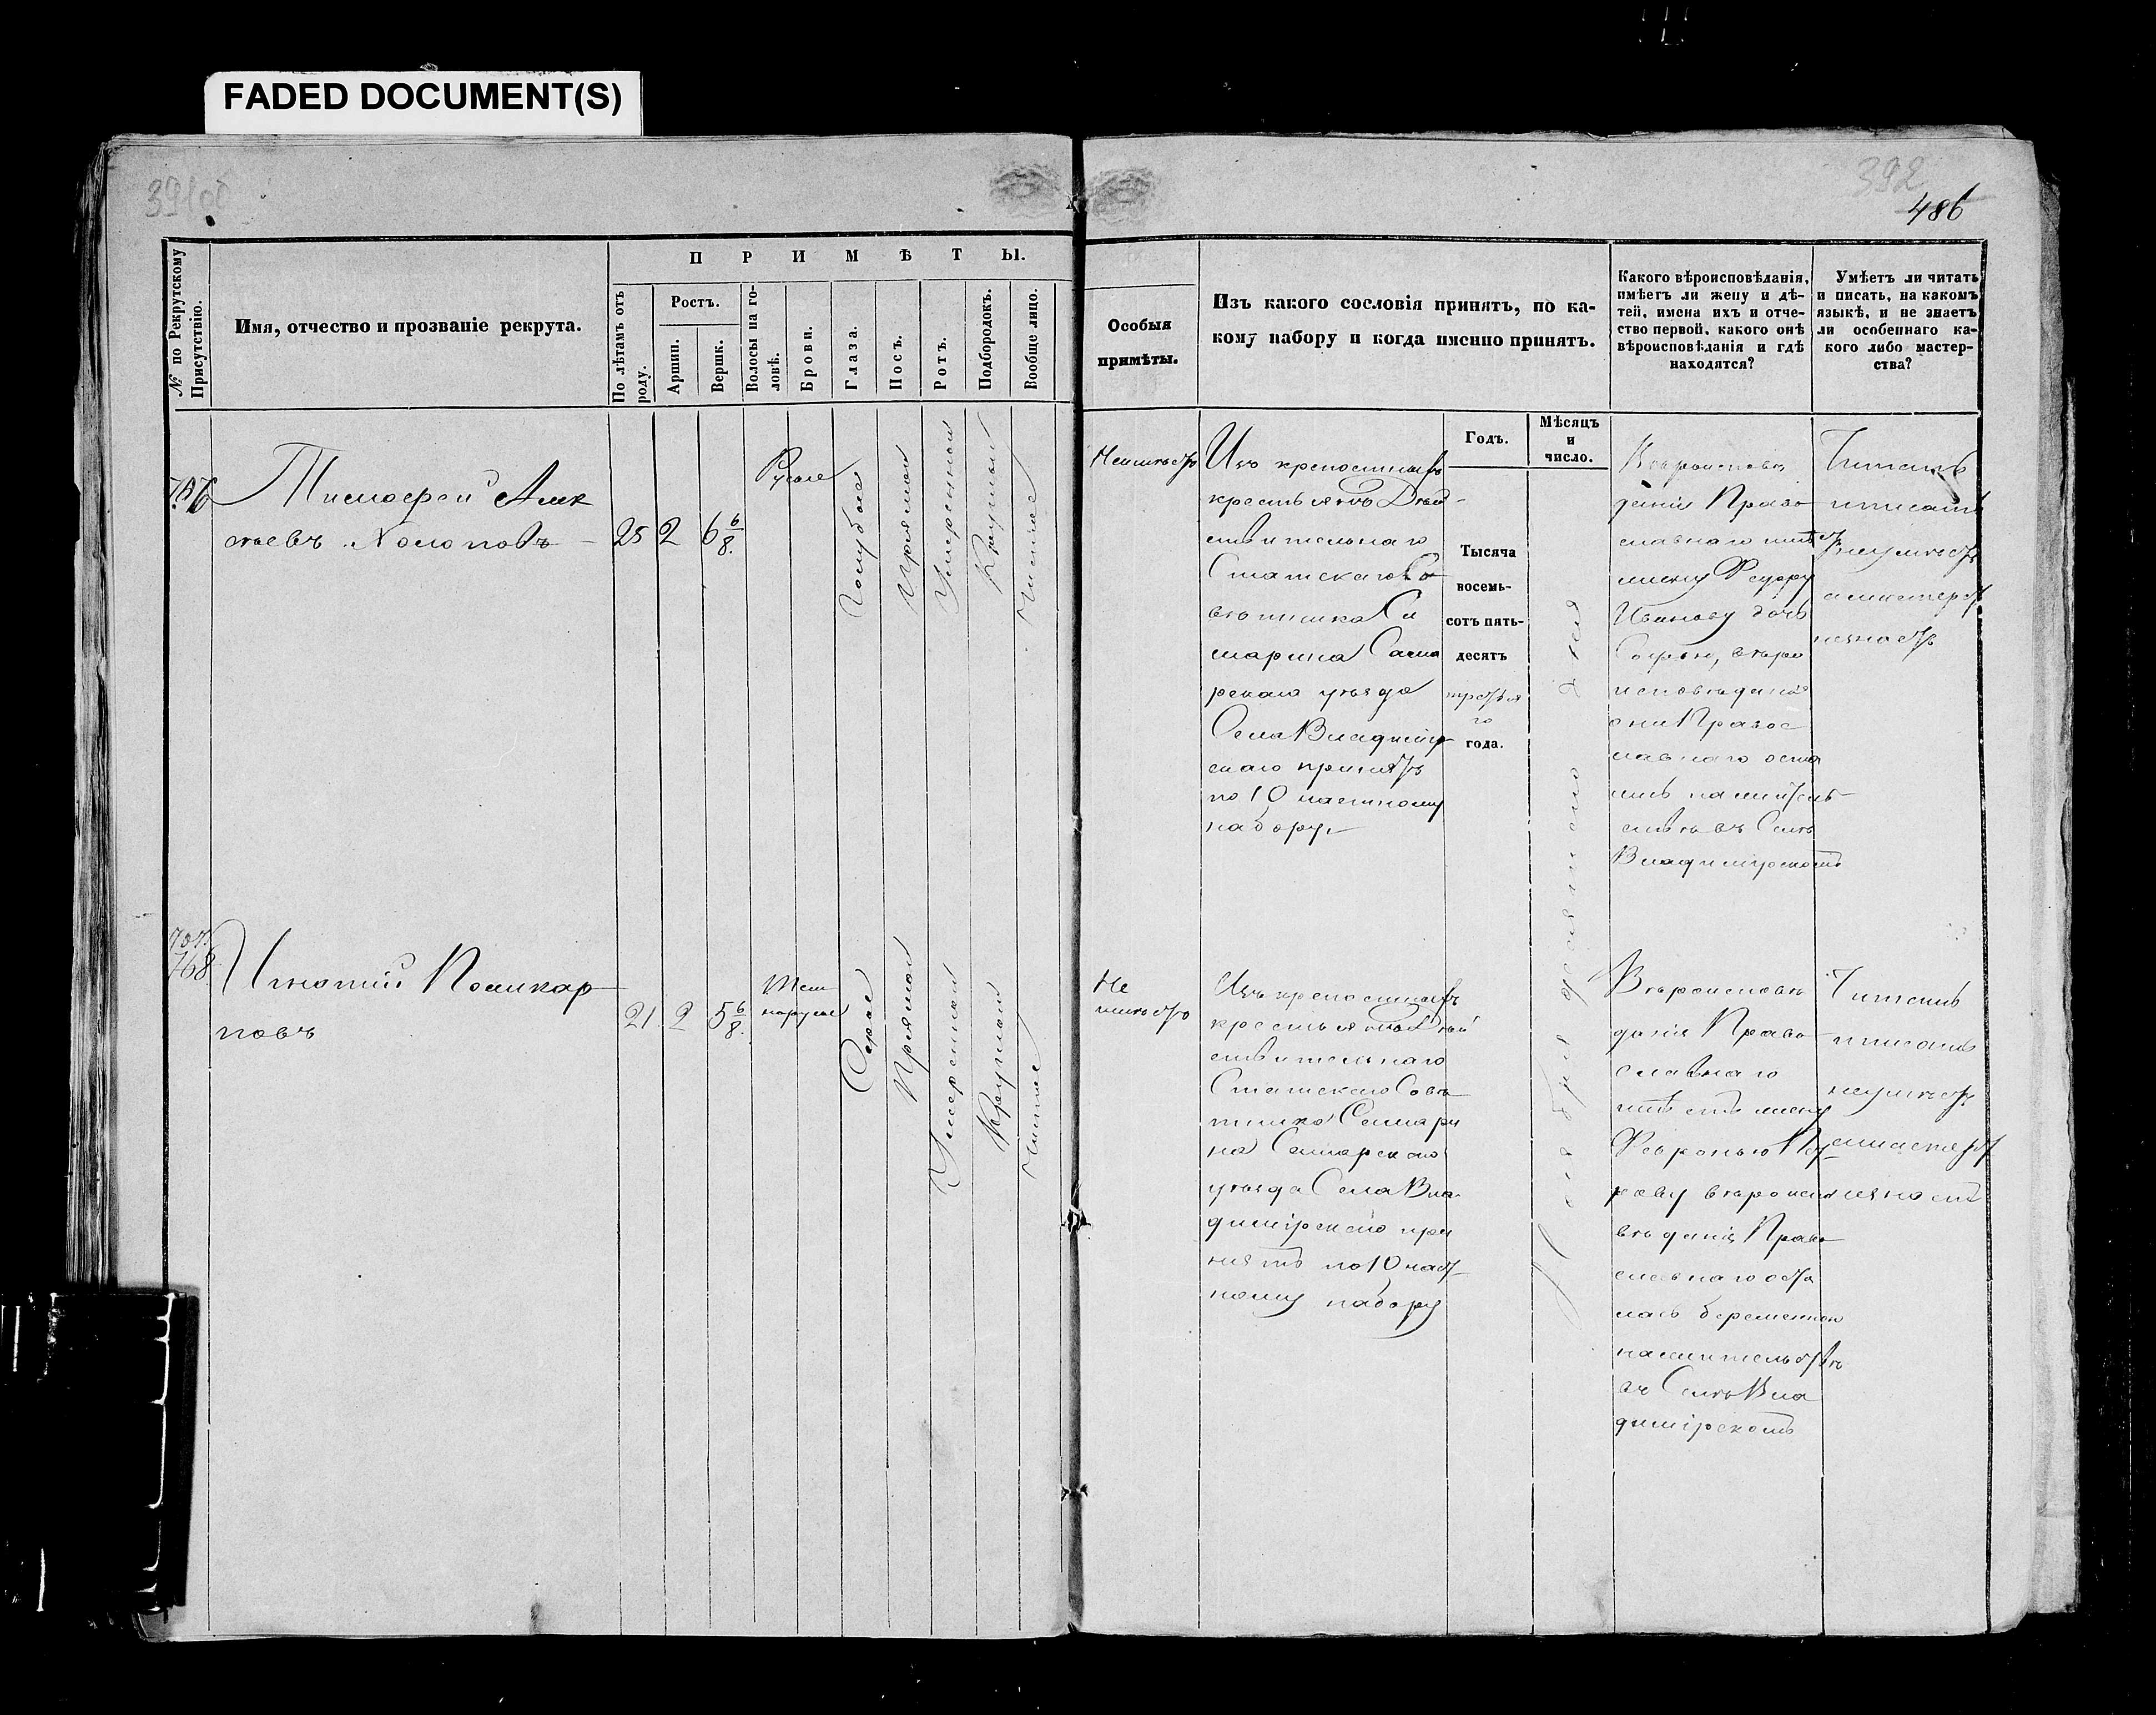 FADED DOCUMENT(S)
392
486
№ по Рекрутскому Присутствію.
Имя, отчество и прозваніе рекрута.
ПРИМѢТЫ.
По лѣтамъ отъ роду.
Ростъ.
Аршин.
Вершк.
Волосы на головѣ.
Брови.
Глаза.
Носъ.
Ротъ.
Подбородокъ.
Вообще лицо.
Особыя
примѣты.
Изъ какого сословія принятъ, по ка-
кому набору и когда именно принятъ.
Годъ.
Мѣсяцъ
и
число.
Какого вѣроисповѣданія,
имѣетъ ли жену и дѣ-
тей, имена ихъ и отче-
ство первой, какого онѣ
вѣроисповѣданія и гдѣ
находятся?
Умѣетъ ли читать
и писать, на какомъ
языкѣ, и не знаетъ
ли особеннаго ка-
кого либо мастер-
ства?
Тимофей Алек
сѣевъ Холоповъ
25 2 6 6/8.
Русые
Голубые
Прямой
Умеренный
Круглый
Чистое
Неимѣетъ
Изъ крепостныхъ
крестьянъ Дѣй-
ствительнаго
Статскаго Со
вѣтника Са
марина Сама
рскаго уѣзда
Села Владимір
скаго принятъ
по 10 частному
набору
Тысяча
восемь-
сотъ пять-
десятъ
третья
го
года.
Вѣроисповѣ
данія Право
славнаго имѣетъ
жену Федору
Иванову дочь
Софью, вѣро
исповѣданія
они Правос
лавнаго оста
лись на житель
ствѣ въ Селѣ
Владимірскомъ
Читать
и писать
неумѣетъ
и мастерст
незнаетъ
768
Игнатий Поликар
повъ
21 2 5 6/8.
Тем
норусые
Серые
Прямой
Умеренный
Круглый
Чистое
Не
имѣетъ
Изъ крепостныхъ
крестьянъ Дѣй
ствительнаго
Статскаго Совѣ
тника Самари
на Самарскаго
уѣзда Села Вла
димірскаго при
нятъ по 10 част
ному набору
Ноября десятаго дня
Вѣроисповѣ
данія Право
славнаго
имѣетъ жену
Февронью
вѣроиспо
вѣданія Право
славнаго оста
лась беременной
на жительствѣ
въ Селѣ Вла
димірскомъ
Читать
и писать
неумѣетъ
и мастерст
незнаетъ